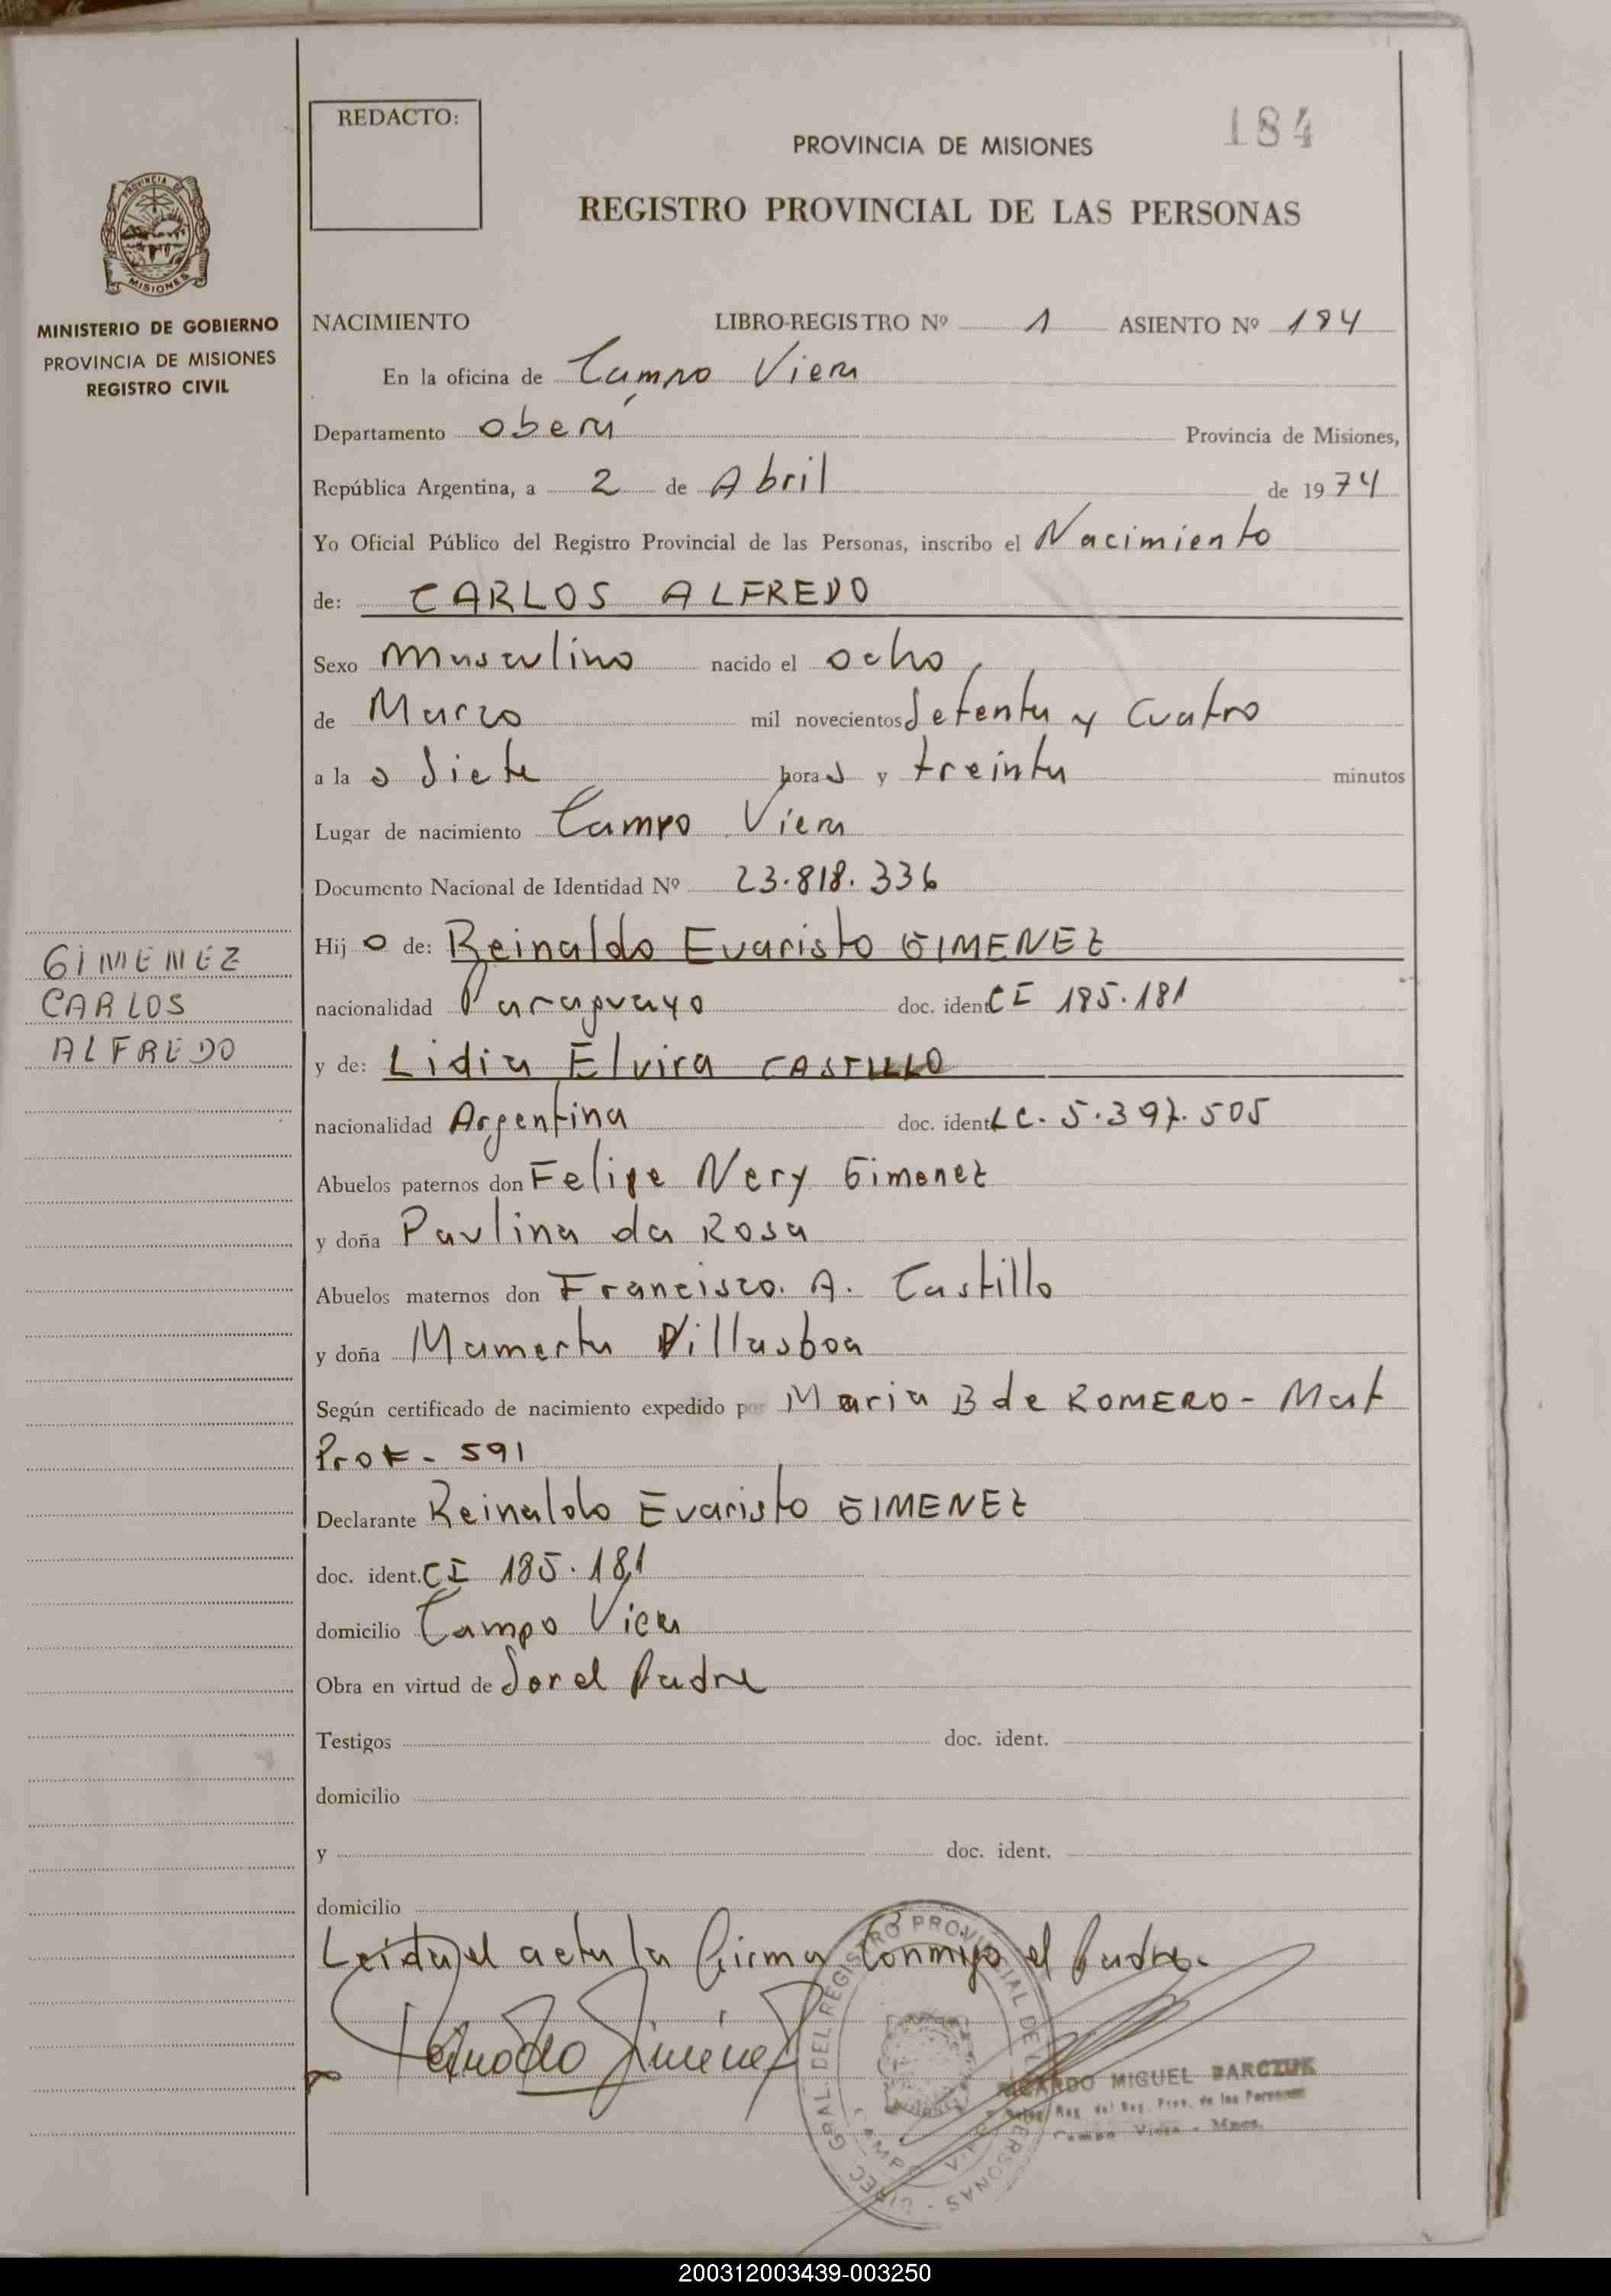 REDACTO:
184
PROVINCIA DE MISIONES
REGISTRO PROVINCIAL DE LAS PERSONAS
PROVINCIA DE
MISIONES
MINISTERIO DE GOBIERNO
PROVINCIA DE MISIONES
REGISTRO CIVIL
NACIMIENTO LIBRO-REGISTRO Nº 1 ASIENTO Nº 184
En la oficina de Campo Viera
Departamento Oberá Provincia de Misiones,
República Argentina, a 2 de Abril de 1974
Yo Oficial Público del Registro Provincial de las Personas, inscribo el Nacimiento
de: CARLOS ALFREDO
Sexo Masculino nacido el ocho,
de Marzo mil novecientos Setenta y Cuatro
a la s Siete horas y treinta minutos
Lugar de nacimiento Campo Viera
Documento Nacional de Identidad Nº 23.818.336
Hij o de: Reinaldo Evaristo GIMENEZ
nacionalidad Paraguayo doc. ident CI 185.181
y de: Lidia Elvira CASTILLO
nacionalidad Argentina doc. ident LC. 5.397.505
Abuelos paternos don Felipe Nery Gimenez
y doña Paulina da Rosa
Abuelos maternos don Francisco. A. Castillo
y doña Mamerta Villasboa
Según certificado de nacimiento expedido por Maria B de ROMERO - Mat
Prof - 591
Declarante Reinaldo Evaristo GIMENEZ
doc. ident. CI 185.181
domicilio Campo Viera
Obra en virtud de Ser el Padre
Testigos doc. ident.
domicilio
y doc. ident.
domicilio
Leida el acta la firma Conmigo el Padre.
GIMENEZ
CARLOS
ALFREDO
Reinaldo Gimenez
GRAL DEL REGISTRO PROVINCIAL DE PERSONAS - DIREC
CAMPO VIERA
RICARDO MIGUEL BARCZUK
Reg. del Reg. Prov. de las Personas
Campo Viera - Mnes.
200312003439-003250